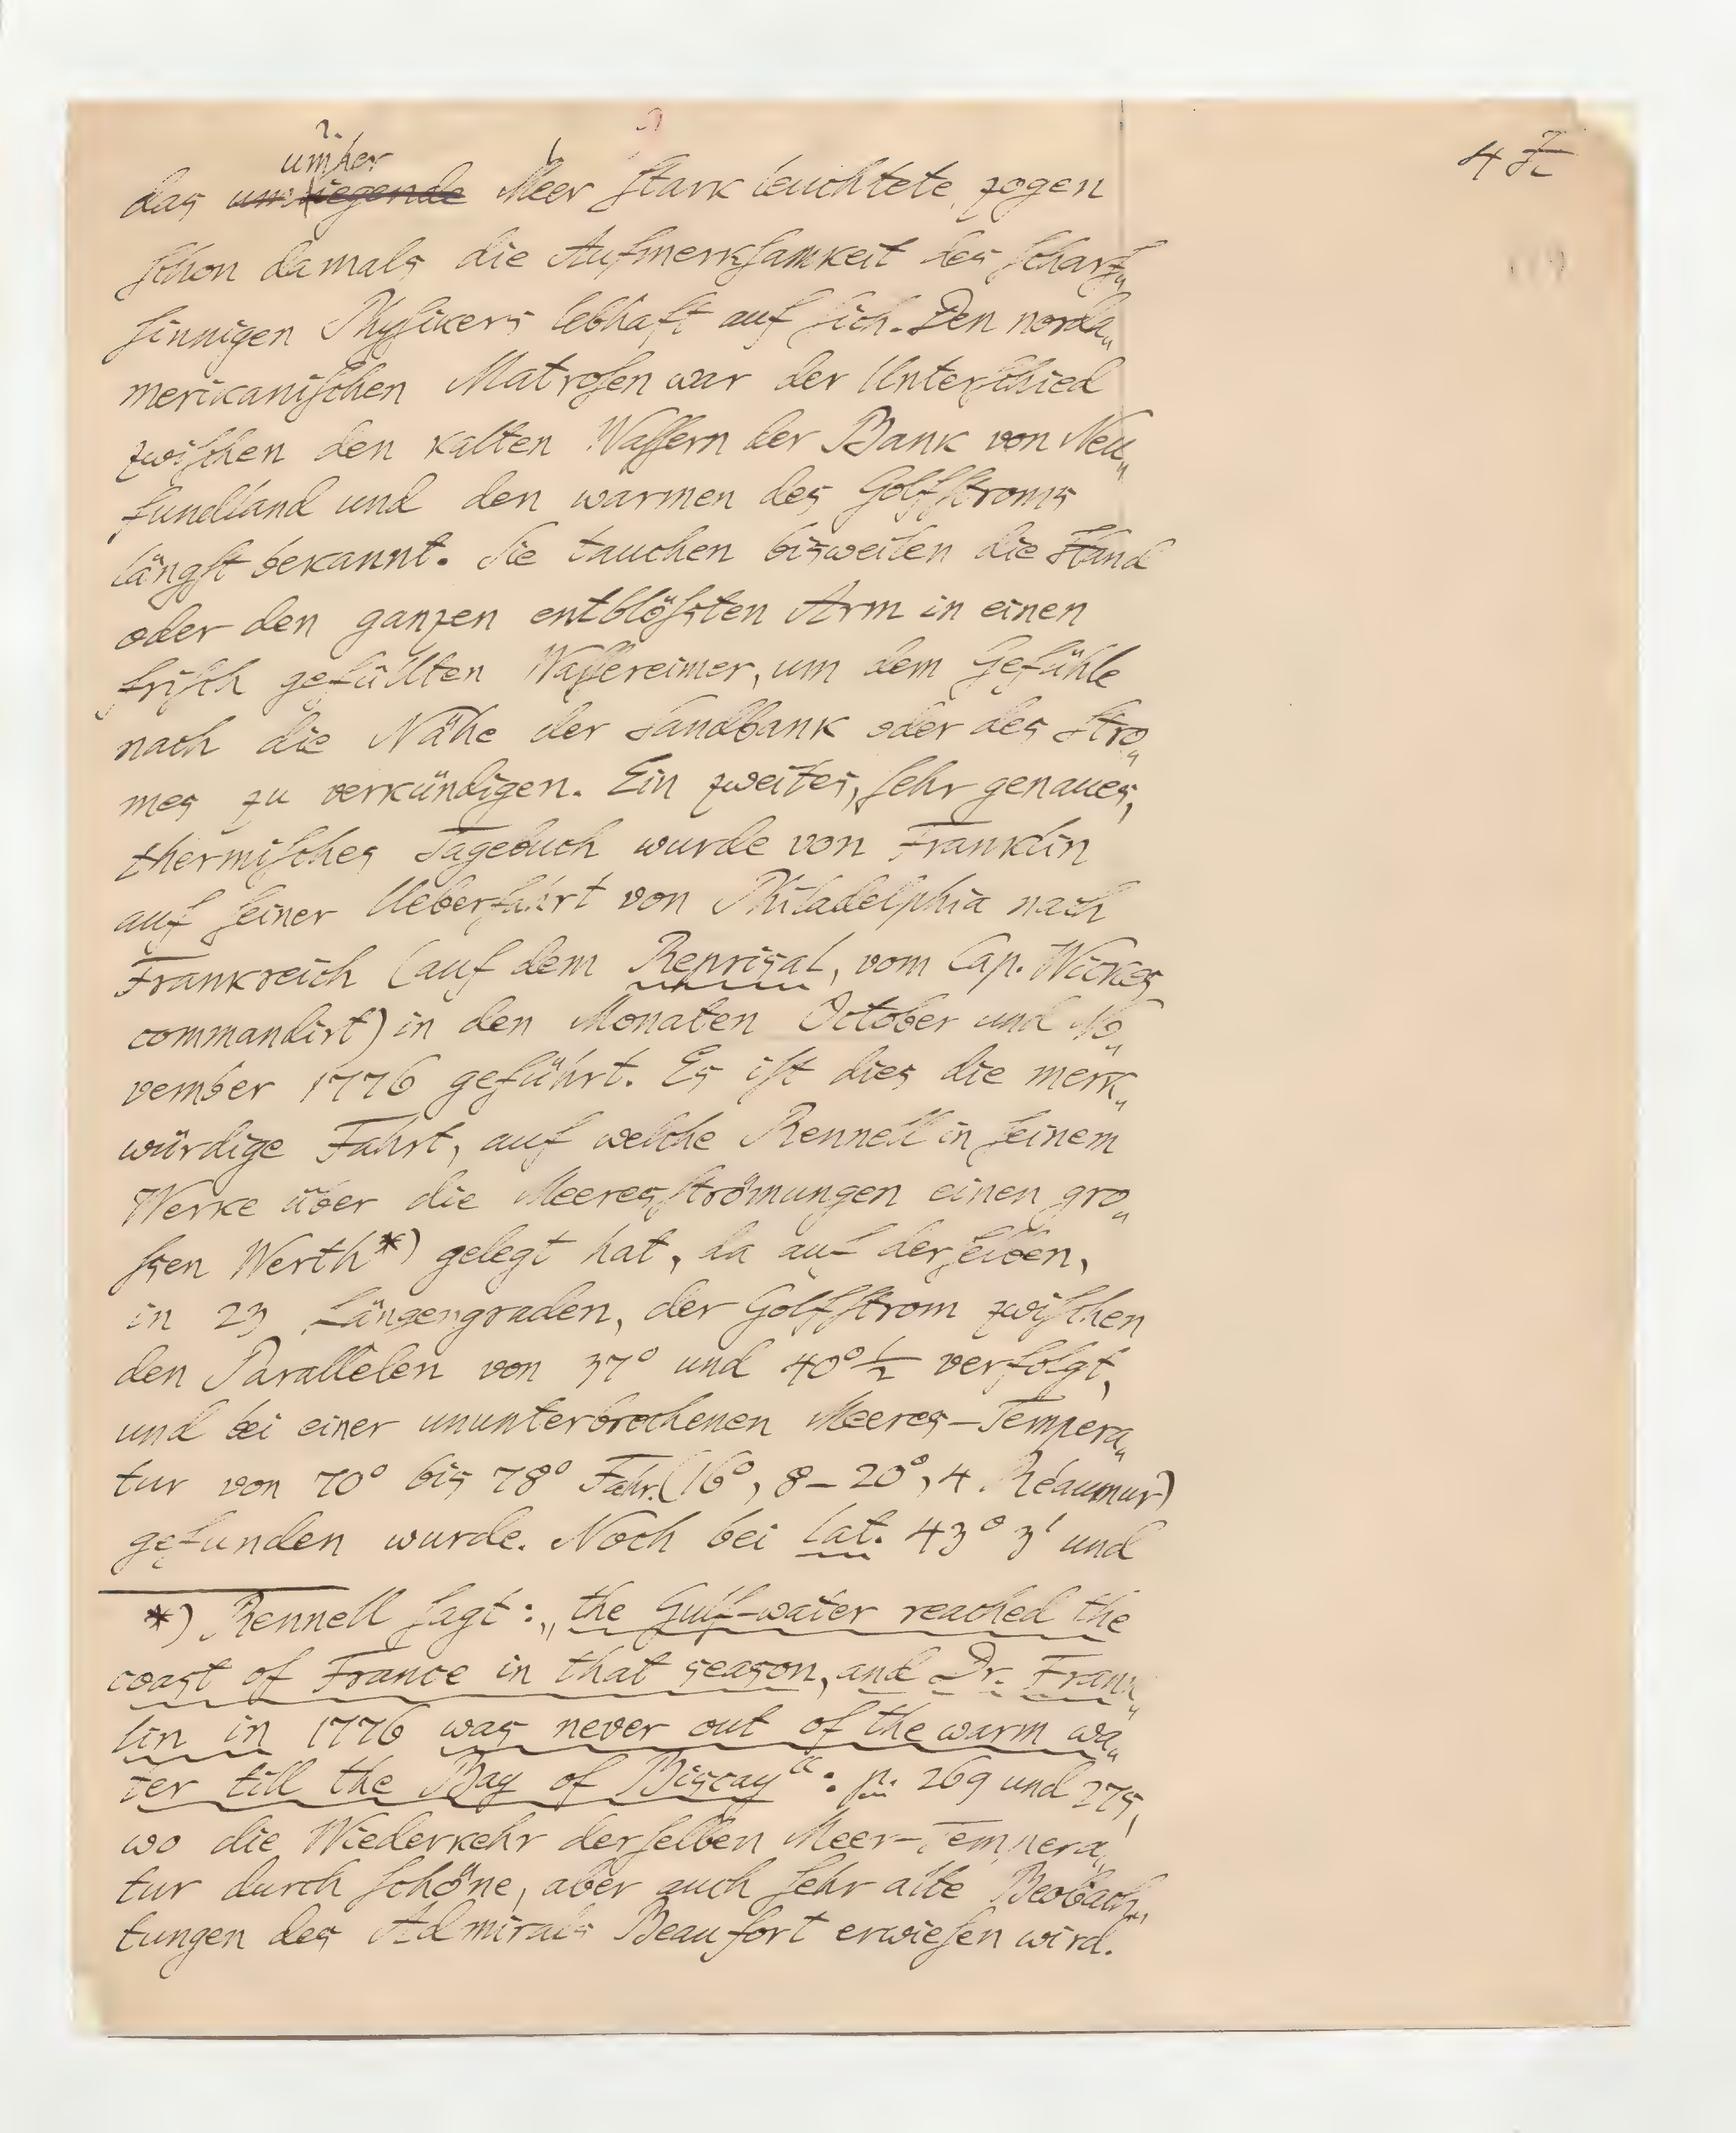 4 Z
umher
das umliegende Meer ſtark leuchtete, zogen
ſchon damals die Aufmerkſamkeit des ſcharf„
ſinnigen Phyſikers lebhaft auf ſich. Den norda„
merikaniſchen Matroſen war der Unterſchied
zwiſchen den kalten Waſſern der Bank von Neu„
fundland und den warmen des Golfſtroms
längſt bekannt. Sie tauchen bisweilen die Hand
oder den ganzen entblöſsten Arm in einen
friſch gefüllten Waſſereimer, um dem Gefühle
nach die Nähe der Sandbank oder des Stro„
mes zu verkündigen. Ein zweites, ſehr genaues,
thermiſches Tagebuch wurde von Franklin
auf ſeiner Ueberfahrt von Philadelphia nach
Frankreich (auf dem Reprisal, vom Cap. Wickes
commandirt) in den Monaten October und No„
vember 1776 geführt. Es iſt dies die merk„
würdige Fahrt, auf welche Rennell in ſeinem
Werke über die Meeresſtrömungen einen gro„
ſsen Werth*) gelegt hat, da auf derſelben,
in 23 Längengraden, der Golfſtrom zwiſchen
den Parallelen von 37° und 40°½ verfolgt,
und bei einer ununterbrochenen Meeres-Tempera„
tur von 70° bis 78° Fahr. (16°,8-20°,4 Réaumur)
gefunden wurde. Noch bei lat. 43° 3' und
*) Rennell ſagt: „the Gulf-water reached the
coast of France in that season, and Dr. Frank„
lin in 1776 was never out of the warm wa„
ter till the Bay of Biscay“: p. 269 und 275,
wo die Wiederkehr derſelben Meer-Tempera„
tur durch ſchöne, aber auch ſehr alte Beobach„
tungen des Admirals Beaufort erwieſen wird.